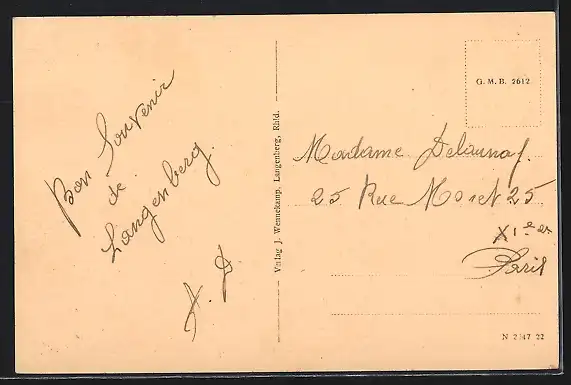 Bon Souvenir
de
Langenberg.
A. D
Verlag J. Wennekamp, Langenberg, Rhld.
G. M. B. 2612
Madame Delaunay.
25 Rue Moret 25
XIe
Paris
N 2347 22